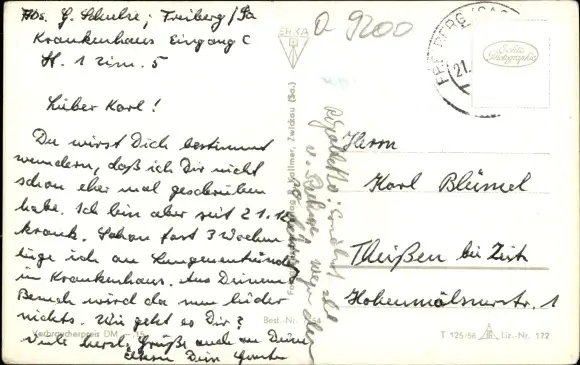 Abs. G. Schulze, Freiberg/Sa
Krankenhaus Eingang C
H. 1 Zim. 5
Lieber Karl!
Du wirst Dich bestimmt
wundern, daß ich Dir nicht
schon eher mal geschrieben
habe. Ich bin aber seit 21.12.
krank. Schon fast 3 Wochen
liege ich an Lungenentzündg
im Krankenhaus. Aus Deinem
Besuch wird da nun leider
nichts. Wie geht es Dir?
Viele herzl. Grüße auch an Deine
Eltern Dein Gunter
Verbraucherpreis DM
Best.-Nr.
ERKA
Kollmer, Zwickau (Sa.)
9200
FREIBERG (SACH
21.
Echte
Photographie
Herrn
Karl Blümel
Theißen bei Zeitz
Hohenmölsnerstr. 1
T 125/56 Liz.-Nr. 172